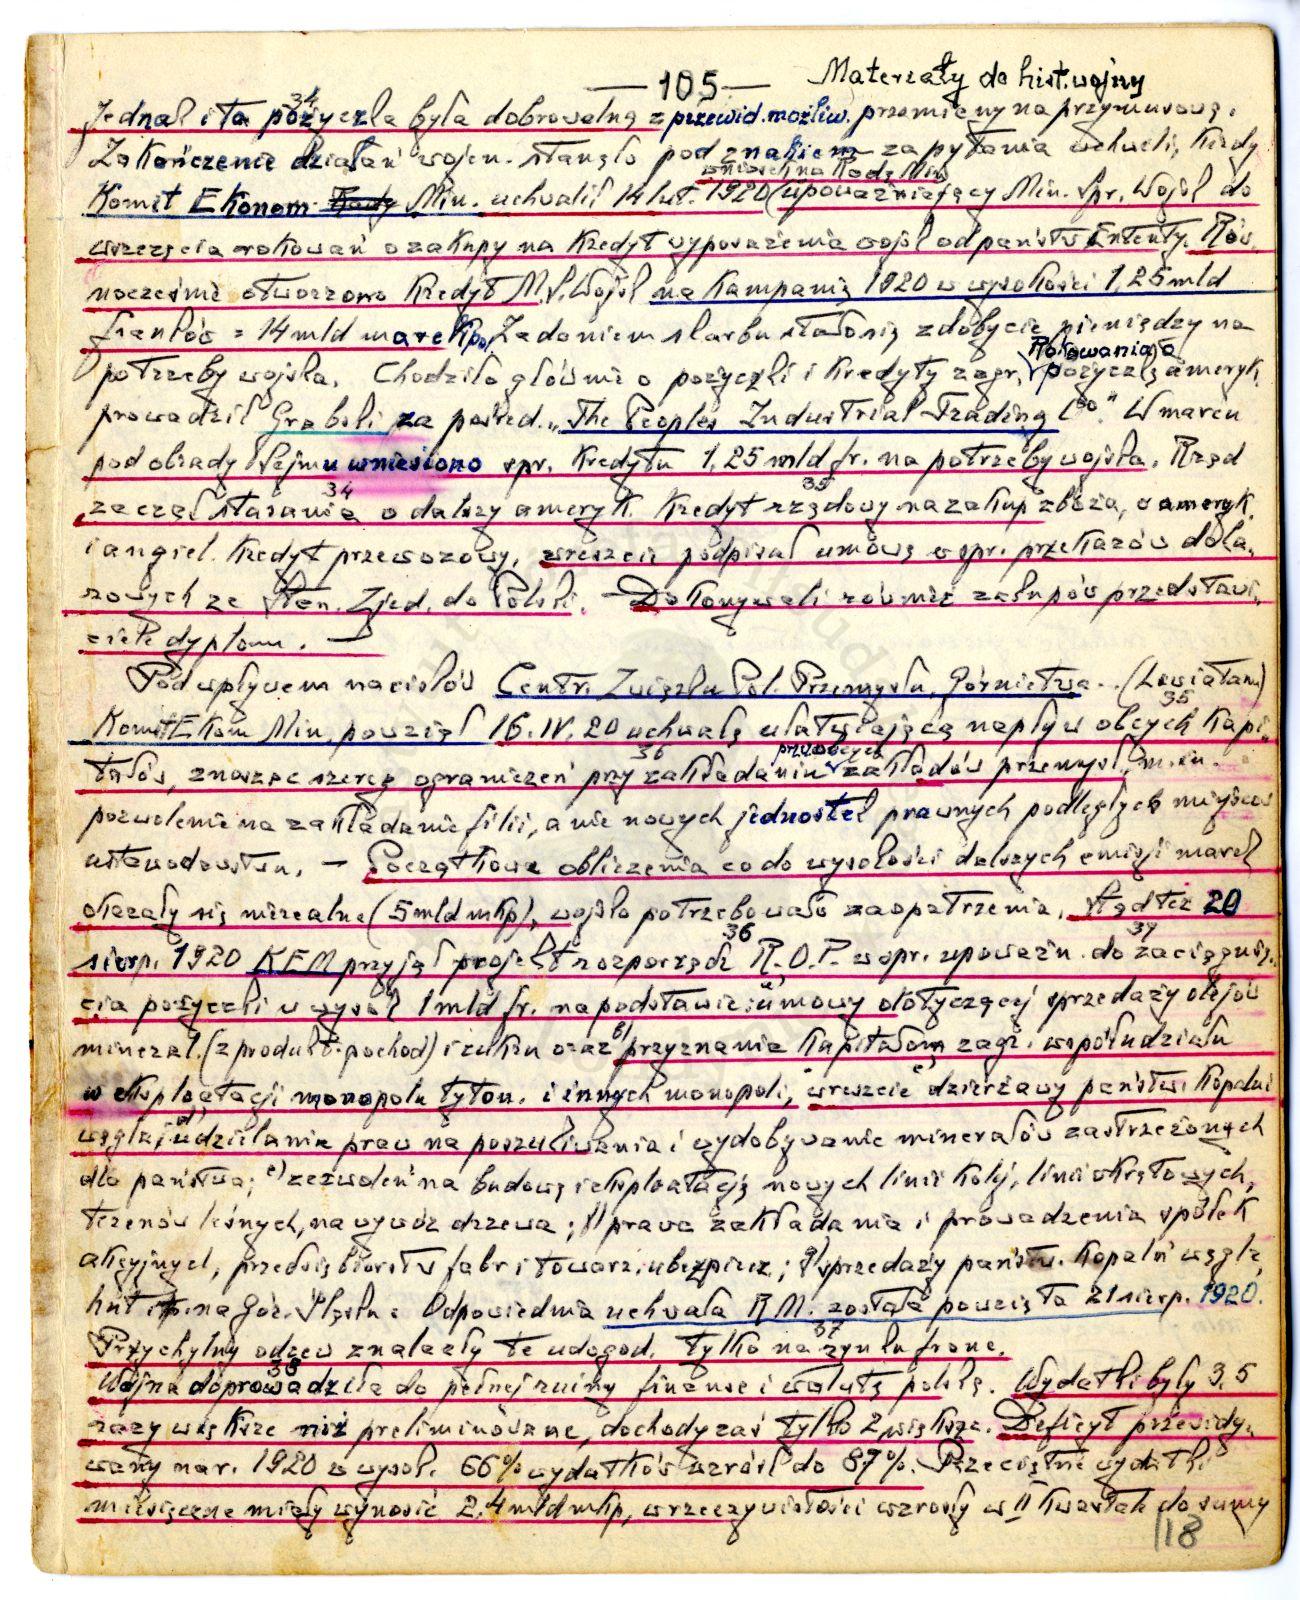 — 105 — Materiały do hist. wojny
Jednak i ta pożyczka była dobrowolną z przewid. możliw. przemiany na przymusową.
Zakończenie działań wojen. stanęło pod znakiem zapytania wchwili, kiedy
wniosek na Radę Min.
Komit Ekonom. Min. uchwalił 14 lut. 1920 (upoważniający Min. Spr. Wojsk do
wszczęcia rokowań o zakupy na kredyt wyposażenia wojsk od państw Ententy. Rów
nocześnie otworzono kredyt M.S.Wojsk na kampanię 1920 w wysokości 1,25 mld
franków = 14 mld marek pol. Zadaniem skarbu stało się zdobycie pieniędzy na
potrzeby wojska. Chodziło głównie o pożyczki i kredyty zagr. Rokowania o pożyczkę ameryk.
prowadził Grabski za pośred. „The Peoples Industrial Trading Co." W marcu
pod obrady Sejmu wniesiono spr. kredytu 1,25 mld fr. na potrzeby wojska. Rząd
34 35
zaczął starania o dalszy ameryk. kredyt rządowy na zakup zboża, o ameryk.
i angiel. kredyt przewozowy, wreszcie podpisał umowę w spr. przekazów dola-
rowych ze Stan. Zjed. do Polski. — Dokonywali również zakupów przedstawi-
ciele dyplom. —
Pod wpływem nacisków Centr. Związku Pol. Przemysłu, Górnictwa.. (Lewiatan)
35
Komit Ekon Min. powziął 16.IV.20 uchwałę ułatwiającą napływ obcych kapi-
36
tałów, znosząc szereg ograniczeń przy zakładaniu przez obcych zakładów przemysł., m.in.
pozwolenie na zakładanie filii, a nie nowych jednostek prawnych podległych miejscow
ustawodawstwu. — Początkowe obliczenia co do wysokości dalszych emisji marek
okazały się nierealne (5 mld mkp), wojsko potrzebowało zaopatrzenia. Stąd też 20
36 37
sierp. 1920 KEM przyjął projekt rozporządz R.O.P. w spr. upoważn. do zaciągnię-
cia pożyczki w wysok 1 mld fr. na podstawie: a) umowy dotyczącej sprzedaży olejów
minerał. (z produkt. pochod) i cukru oraz b) przyznania kapitałom zagr. współudziału
w eksploatacji monopolu tyton. i innych monopoli, wreszcie c) dzierżawy państw. kopalni
węgla; d) udzielania praw na poszukiwania i wydobywanie minerałów zastrzeżonych
dla państwa; e) zezwoleń na budowę i eksploatację nowych linii kolej, linii okrętowych,
terenów leśnych, na wywóz drzewa; f) prawa zakładania i prowadzenia spółek
akcyjnych, przedsiębiorstw fabr i towarz. ubezpiecz; g) sprzedaży państw. kopalń węgla,
hut itp. na Gór. Śląsku. Odpowiednia uchwała R.M. została powzięta 21 sierp. 1920.
37
Przychylny odzew znalazły te udogod. tylko na rynku franc.
38
Wojna doprowadziła do pełnej ruiny finanse i walutę polską. Wydatki były 3,5
razy większe niż preliminowane, dochody zaś tylko 2 większe. Deficyt przewidy-
wany na r. 1920 w wysok. 66% wydatków wzrósł do 87%. Przeciętne wydatki
miesięczne miały wynosić 2,4 mld mkp, w rzeczywistości wzrosły w II kwartale do sumy
118